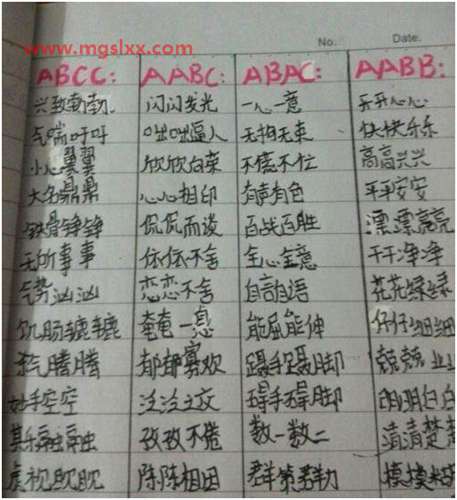 www.mgslxx.com
No. Date.
ABCC: AABC: ABAC: AABB:
兴致勃勃 闪闪发光 一心一意 开开心心
气喘吁吁 咄咄逼人 无拘无束 快快乐乐
小心翼翼 欣欣向荣 不慌不忙 高高兴兴
大名鼎鼎 心心相印 有声有色 平平安安
铁骨铮铮 侃侃而谈 百战百胜 漂漂亮亮
无所事事 依依不舍 全心全意 干干净净
气势汹汹 恋恋不舍 自言自语 花花绿绿
饥肠辘辘 奄奄一息 能屈能伸 仔仔细细
腾腾 郁郁寡欢 蹑手蹑脚 兢兢业业
妙手空空 泛泛之交 碍手碍脚 明明白白
其乐融融 孜孜不倦 数一数二 清清楚楚
虎视眈眈 陈陈相因 群策群力 模模